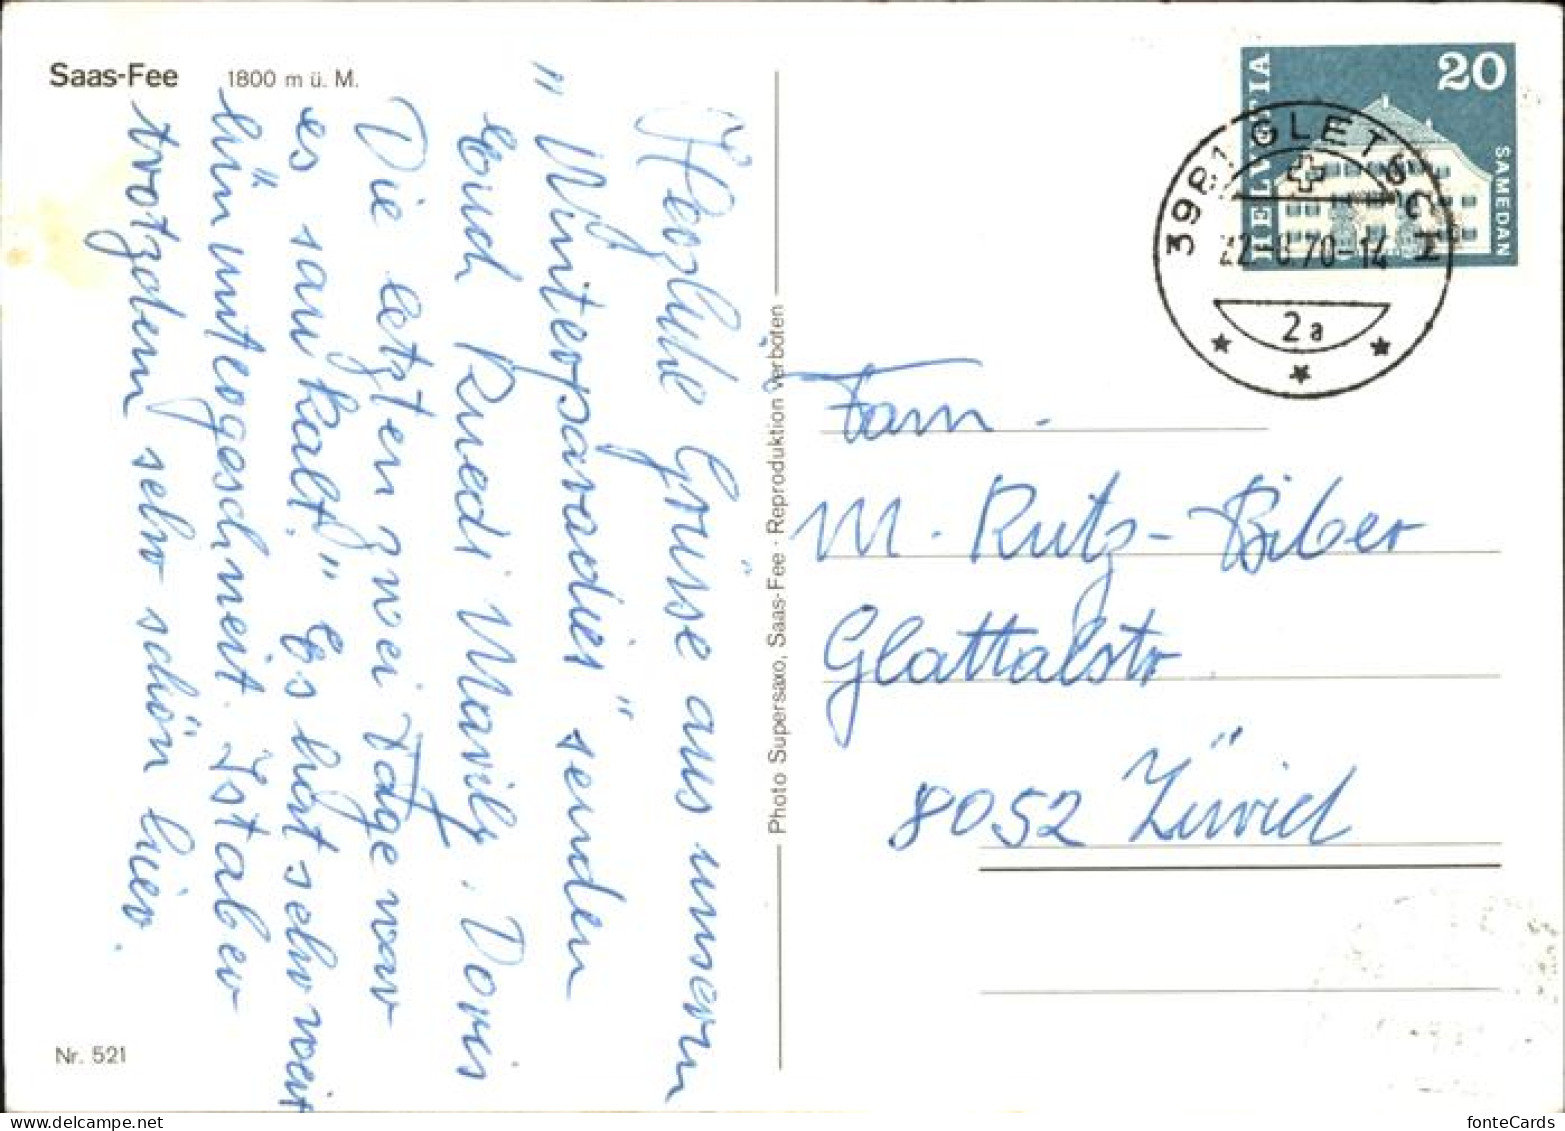 Saas-Fee 1800 m ü. M.
Herzliche Grüsse aus unserm
"Winterparadies" senden
Euch Ruedi, Marily, Doris
Die letzten zwei Tage war
es saukalt!" Es hat sehr weit
hinuntergeschneit. Ist aber
trotzdem sehr schön hier.
Nr. 521
Photo Supersaxo, Saas-Fee · Reproduktion verboten
HELVETIA
20
SAMEDAN
3981 GLETSCH
70-14
2a
Fam.
M. Rutz-Biber
Glattalstr
8052 Zürich
fonteCards